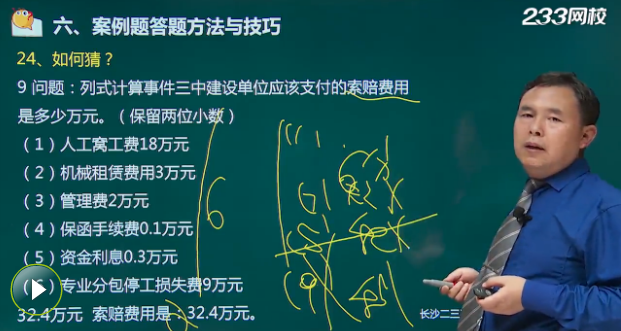 六、案例题答题方法与技巧
233网校
24、如何猜？
9 问题：列式计算事件三中建设单位应该支付的索赔费用
是多少万元。（保留两位小数）
（1）人工窝工费18万元
（2）机械租赁费用3万元
（3）管理费2万元
（4）保函手续费0.1万元
（5）资金利息0.3万元
）专业分包停工损失费9万元
32.4万元 索赔费用是：32.4万元。
6
长沙二三